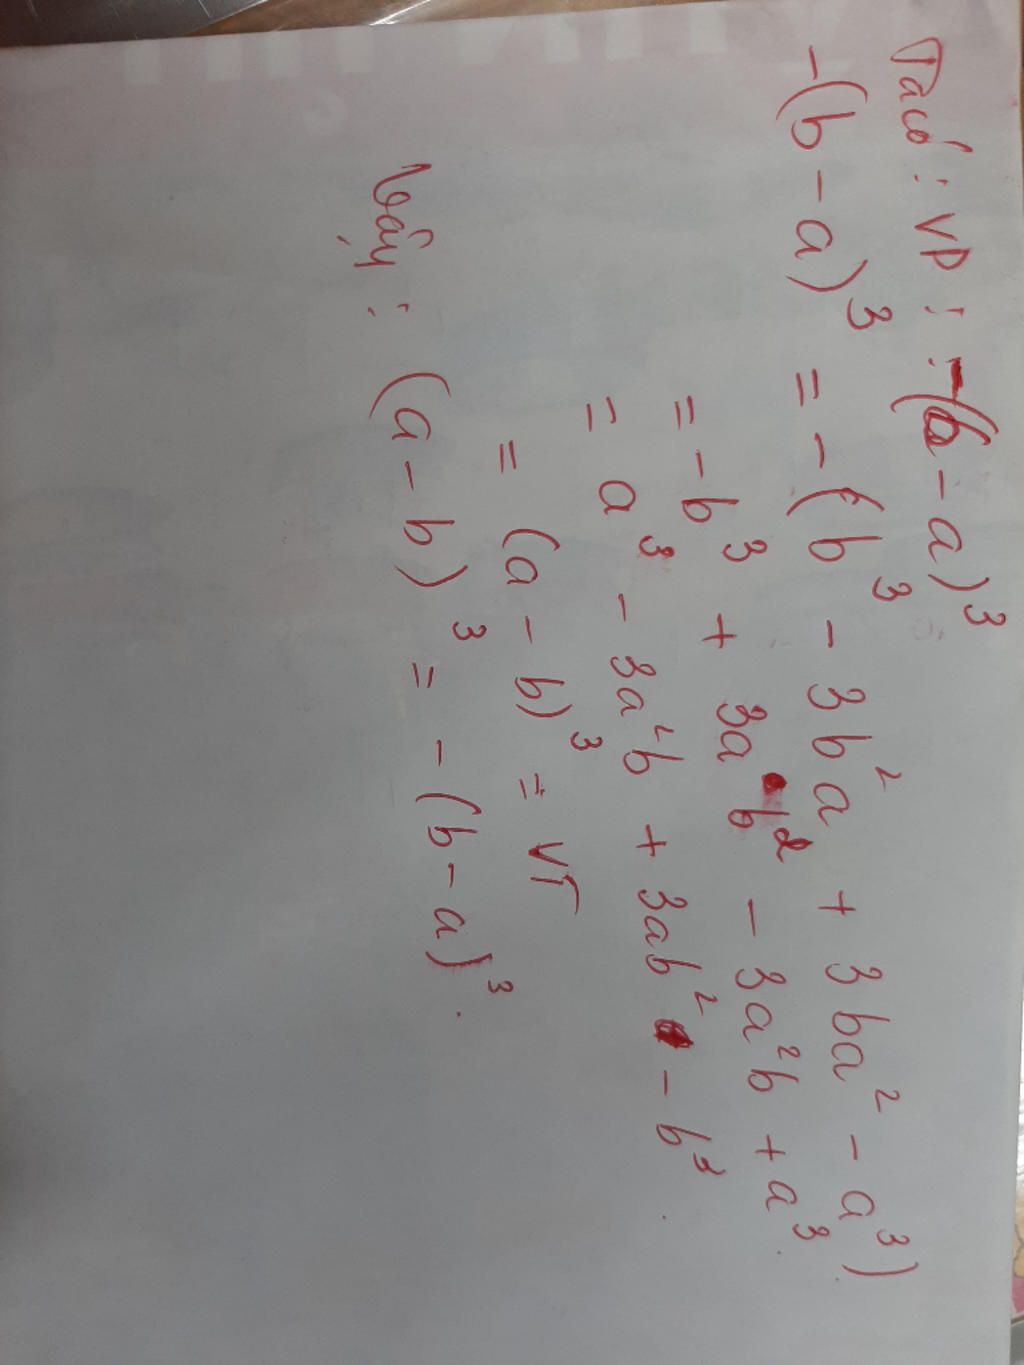 Ta có : VP : : -(b - a)³
-(b - a)³ = -(b³ - 3b²a + 3ba² - a³)
= -b³ + 3a b² - 3a²b + a³
= a³ - 3a²b + 3ab² - b³
= (a - b)³ = VT
Vậy : (a - b)³ = -(b - a)³.